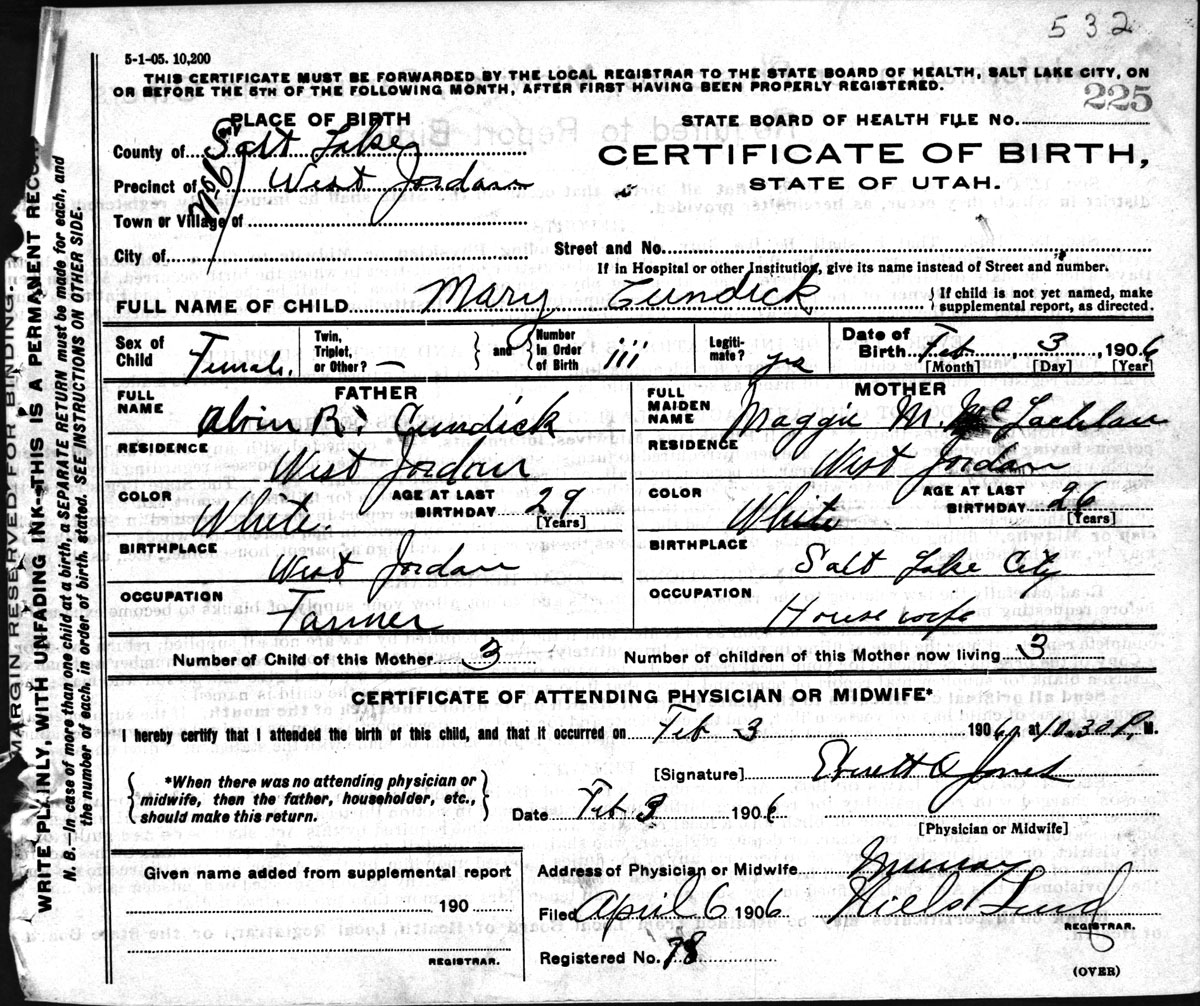 532
5-1-05. 10,200
THIS CERTIFICATE MUST BE FORWARDED BY THE LOCAL REGISTRAR TO THE STATE BOARD OF HEALTH, SALT LAKE CITY, ON
OR BEFORE THE 5TH OF THE FOLLOWING MONTH, AFTER FIRST HAVING BEEN PROPERLY REGISTERED.
225
PLACE OF BIRTH
STATE BOARD OF HEALTH FILE No.
County of Salt Lake
CERTIFICATE OF BIRTH,
Precinct of West Jordan
STATE OF UTAH.
Town or Village of
City of
Street and No.
If in Hospital or other Institution, give its name instead of Street and number.
FULL NAME OF CHILD Mary Cundick
{If child is not yet named, make
supplemental report, as directed.
Sex of Child Female.
Twin, Triplet, or Other? —
} and {
Number In Order of Birth iii
Legiti-mate? yes
Date of Birth Feb, 3, 1906
[Month] [Day] [Year]
FATHER
MOTHER
FULL NAME Alvin R. Cundick
FULL MAIDEN NAME Maggie M. McLachlan
RESIDENCE West Jordan
RESIDENCE West Jordan
COLOR White.
AGE AT LAST BIRTHDAY 29
[Years]
COLOR White
AGE AT LAST BIRTHDAY 26
[Years]
BIRTHPLACE West Jordan
BIRTHPLACE Salt Lake City
OCCUPATION Farmer
OCCUPATION Housewife
Number of Child of this Mother 3
Number of children of this Mother now living 3
CERTIFICATE OF ATTENDING PHYSICIAN OR MIDWIFE*
I hereby certify that I attended the birth of this child, and that it occurred on Feb 3 1906, at 10.30 P. M.
{*When there was no attending physician or
midwife, then the father, householder, etc.,
should make this return.}
[Signature] Everett O Jones
Date Feb 3 1906
[Physician or Midwife]
Given name added from supplemental report
190
REGISTRAR.
Address of Physician or Midwife Murray
Filed April 6 1906 Niels Lind
REGISTRAR.
Registered No. 78
(OVER)
MARGIN RESERVED FOR BINDING.
WRITE PLAINLY, WITH UNFADING INK--THIS IS A PERMANENT RECORD
N. B.—In case of more than one child at a birth, a SEPARATE RETURN must be made for each, and
the number of each, in order of birth, stated. SEE INSTRUCTIONS ON OTHER SIDE.